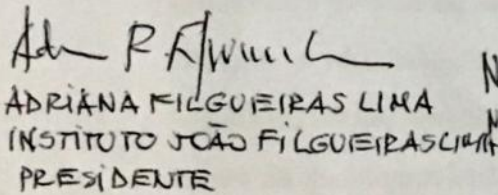 ADRIANA FILGUEIRAS LIMA
INSTITUTO JOÃO FILGUEIRAS LIMA
PRESIDENTE